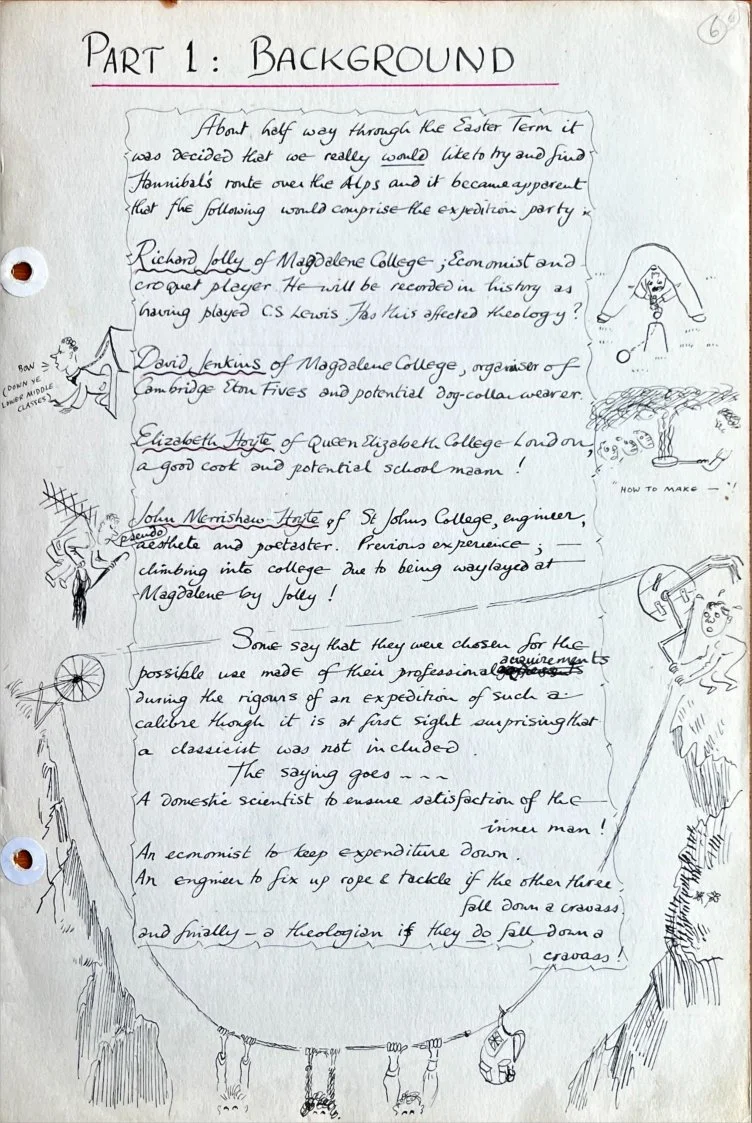 6
PART 1: BACKGROUND
About half way through the Easter Term it
was decided that we really would like to try and find
Hannibal's route over the Alps and it became apparent
that the following would comprise the expedition party :
Richard Jolly of Magdalene College ; Economist and
croquet player. He will be recorded in history as
having played C.S Lewis. Has this affected theology?
David Jenkins of Magdalene College, organiser of
Cambridge Eton Fives and potential dog-collar wearer.
BOW
(DOWN YE
LOWER MIDDLE
CLASSES)
Elizabeth Hoyte of Queen Elizabeth College London,
a good cook and potential school maam !
"HOW TO MAKE — "!
John Merrishaw Hoyte of St Johns College, engineer,
pseudo
aesthete and poetaster. Previous experience ; —
climbing into college due to being waylayed at
Magdalene by Jolly !
Some say that they were chosen for the
possible use made of their professional acquirements
during the rigours of an expedition of such a
calibre though it is at first sight surprising that
a classicist was not included.
The saying goes ~ ~ ~
A domestic scientist to ensure satisfaction of the
inner man !
An economist to keep expenditure down.
An engineer to fix up rope & tackle if the other three
fall down a cravass.
and finally – a theologian if they do fall down a
cravass !